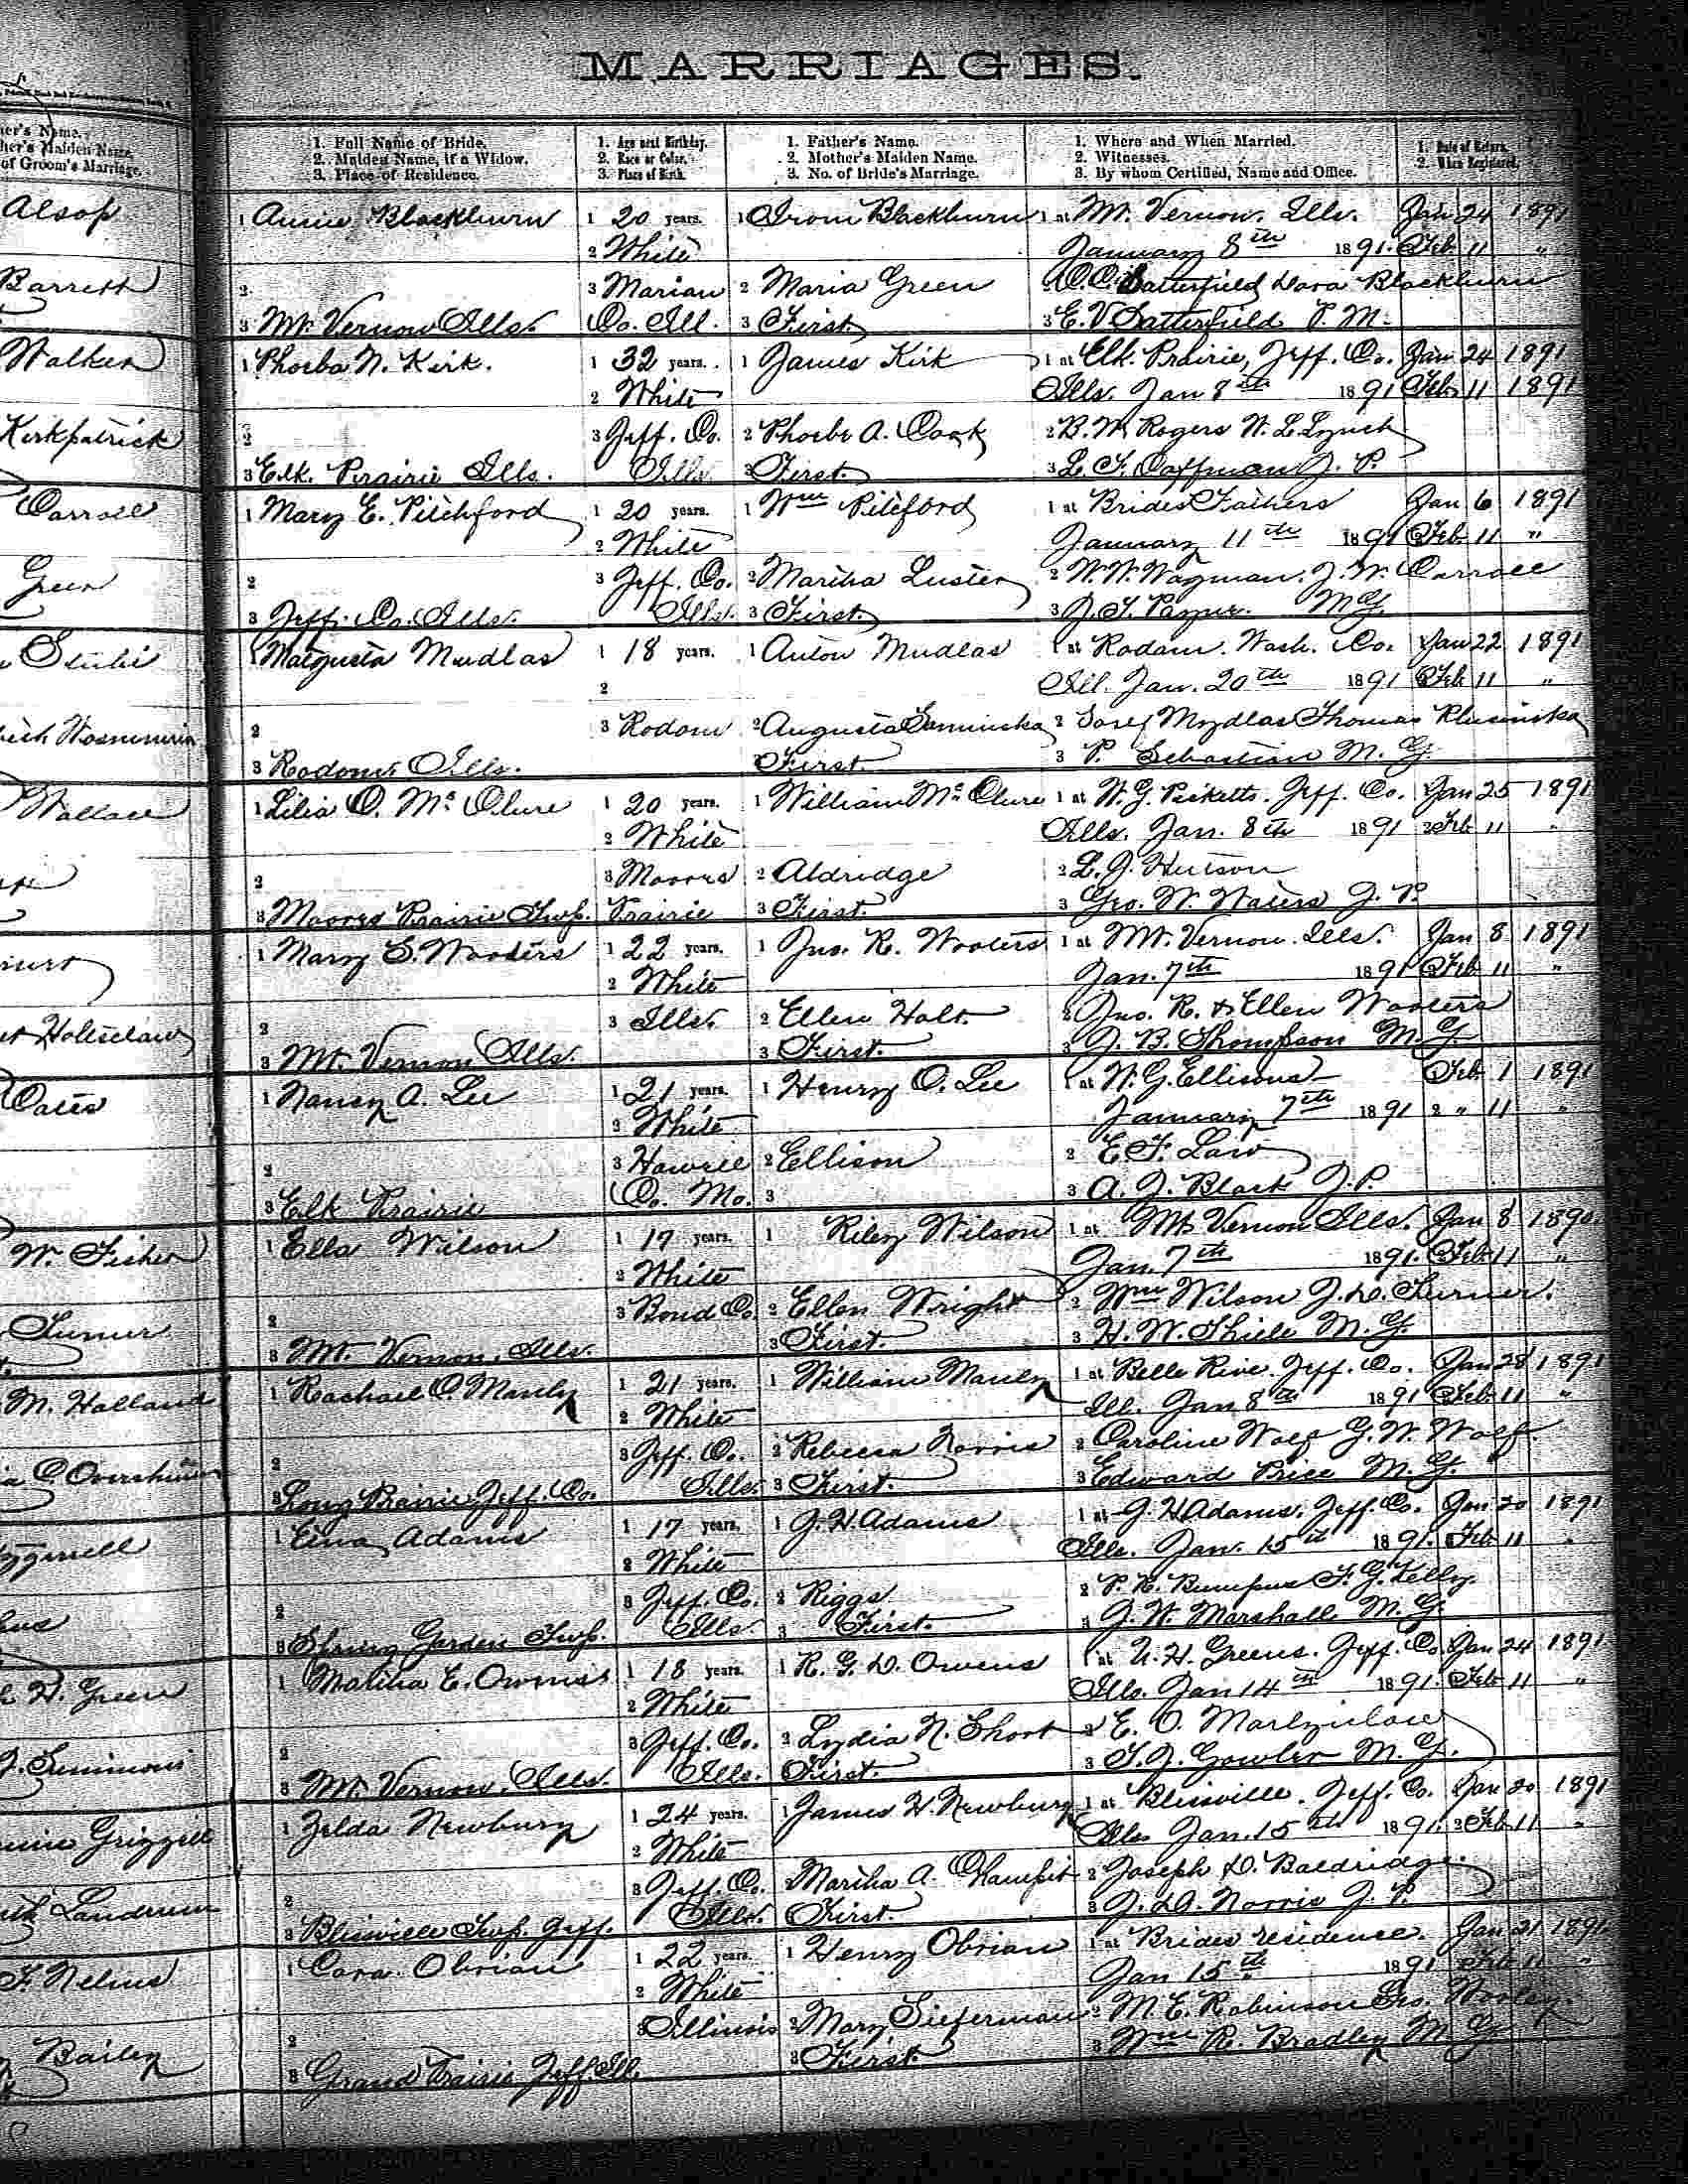 MARRIAGES.
1. Full Name of Bride.
2. Maiden Name, if a Widow.
3. Place of Residence.
1. Age next Birthday.
2. Race or Color.
3. Place of Birth.
1. Father's Name.
2. Mother's Maiden Name.
3. No. of Bride's Marriage.
1. Where and When Married.
2. Witnesses.
3. By whom Certified, Name and Office.
1. Date of Return.
2. When Registered.
Alsop 1 Blackburn 1 20 years. 1 Blackburn 1 at Mt. Vernon. Ills. Jan 24 1891
2 White January 8th 1891. 2 Feb 11 "
Barrett 2 3 Marian 2 Maria Green Satterfield Dora Blackburn
3 Mt Vernon Ills. Co. Ill. 3 First 3 E. V. Satterfield P. M.
Walker 1 Phoeba N. Kirk. 1 32 years. 1 James Kirk 1 at Elk Prairie, Jeff. Co. Jan 24 1891
2 White Ills. Jan 8th 1891 2 Feb 11 1891
Kirkpatrick 2 3 Jeff. Co. 2 Phoebe A. Cook 2 B. W. Rogers W. L. Lynch
3 Elk. Prairie Ills. Ills. 3 First. 3 L. F. Coffman J. P.
Carroll 1 Mary E. Pitchford 1 20 years. 1 Wm Pitcford 1 at Brides Fathers Jan 6 1891
2 White January 11th 1891 2 Feb 11 "
Green 2 3 Jeff. Co. 2 Martha Luster 2 W. W. Wagman. J. W. Carroll
3 Jeff. Co. Ills. Ills. 3 First. 3 J. T. M G
1 Mudlas 1 18 years. 1 Anton Mudlas 1 at Radom. Wash. Co. Jan 22 1891
2 Ill. Jan. 20th 1891 2 Feb 11 "
2 3 Rodom 2 Augusta 2 Josef Mydlas Thomas
3 Rodom. Ills. First. 3 P. Sebastian M. G.
Wallace 1 Lilia O. Mc Clure 1 20 years. 1 William Mc Clure 1 at W. G. Picketts. Jeff. Co. Jan 25 1891
2 White Ills. Jan. 8th 1891 2 Feb 11 "
2 3 Moores 2 Aldridge 2 L. J. Hutson
3 Moores Prairie Twp. Prairie 3 First. 3 Geo. W. Waters J. P.
1 Mary S. Wooters 1 22 years. 1 Jno. R. Wooters 1 at Mt. Vernon. Ills. Jan 8 1891
2 White Jan. 7th 1891 2 Feb 11 "
Holtsclaw 2 3 Ills. 2 Ellen Holt. 2 Jno. R. & Ellen Wooters
3 Mt. Vernon Ills. 3 First. 3 J. B. Thompson M. G.
Cates 1 Nancy A. Lee 1 21 years. 1 Henry O. Lee 1 at W. G. Ellisons Feb 1 1891
2 White January 7th 1891 2 " 11 "
2 3 Howell 2 Ellison 2 E. F. Law
3 Elk Prairie Co. Mo. 3 3 A. J. Black J. P.
W. Fisher 1 Ella Wilson 1 17 years. 1 Riley Wilson 1 at Mt Vernon Ills. Jan 8 1890
2 White Jan. 7th 1891. 2 Feb 11 "
Turner 2 3 Bond Co. 2 Ellen Wright 2 Wm Wilson J. D. Turner.
3 Mt. Vernon. Ills. 3 First. 3 H. W. Thiele M. G.
M. Holland 1 Rachael O. Manly 1 21 years. 1 William Manly 1 at Belle Rive. Jeff. Co. Jan 28 1891
2 White Ill. Jan 8th 1891 2 Feb. 11 "
2 3 Jeff. Co. 2 Rebecca Norris 2 Caroline Wolf G. W. Wolf
3 Long Prairie Jeff. Co. Ills. 3 First. 3 Edward Price M. G.
1 Adams 1 17 years. 1 J. H. Adams 1 at J. H. Adams, Jeff. Co. Jan 20 1891
2 White Ills. Jan. 15th 1891. 2 Feb 11 "
2 3 Jeff. Co. 2 Riggs 2 P. R. Bumpus F. G. Kelly.
3 Spring Garden Twp. Ills. 3 First. 3 J. W. Marshall M. G.
H. Green 1 E. Owens 1 18 years. 1 R. G. D. Owens 1 at U. H. Greens. Jeff. Co. Jan 24 1891
2 White Ills. Jan 14th 1891. 2 Feb 11 "
J. Simmons 2 3 Jeff. Co. 2 Lydia N. Short 2 E. O.
3 Mt. Vernon, Ills. Ills. First. 3 T. J. Gowler M. G.
Grizzell 1 Zelda Newbury 1 24 years. 1 James H. Newbury 1 at Blissville. Jeff. Co. Jan 20 1891
2 White Ills Jan. 15th 1891. 2 Feb 11 "
Landrum 2 3 Jeff. Co. Martha A. 2 Joseph D. Baldridge.
3 Blissville Twp. Jeff. Ills. First. 3 J. D. Norris J. P.
F. Nelms 1 Cora Obrian 1 22 years. 1 Henry Obrian 1 at Brides residence. Jan 21 1891
2 White Jan 15th 1891 2 Feb 11 "
Bailey 2 3 Illinois 2 Mary Sieferman 2 M. E. Robinson Geo. Wooley.
3 Grand Prairie Jeff. Ill. 3 First 3 Wm R. Bradley M G